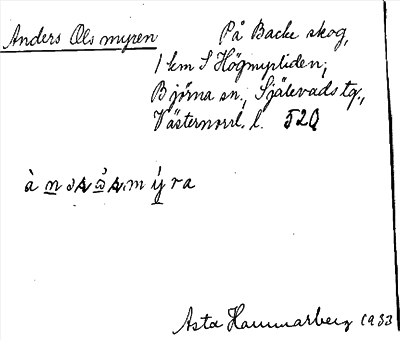 Anders Ols myren
På Backe skog,
1 km S Högmypliden,
Björna sn., Själevads tg.,
Västernorrl. l. 52Q
Asta Hammarberg 1933